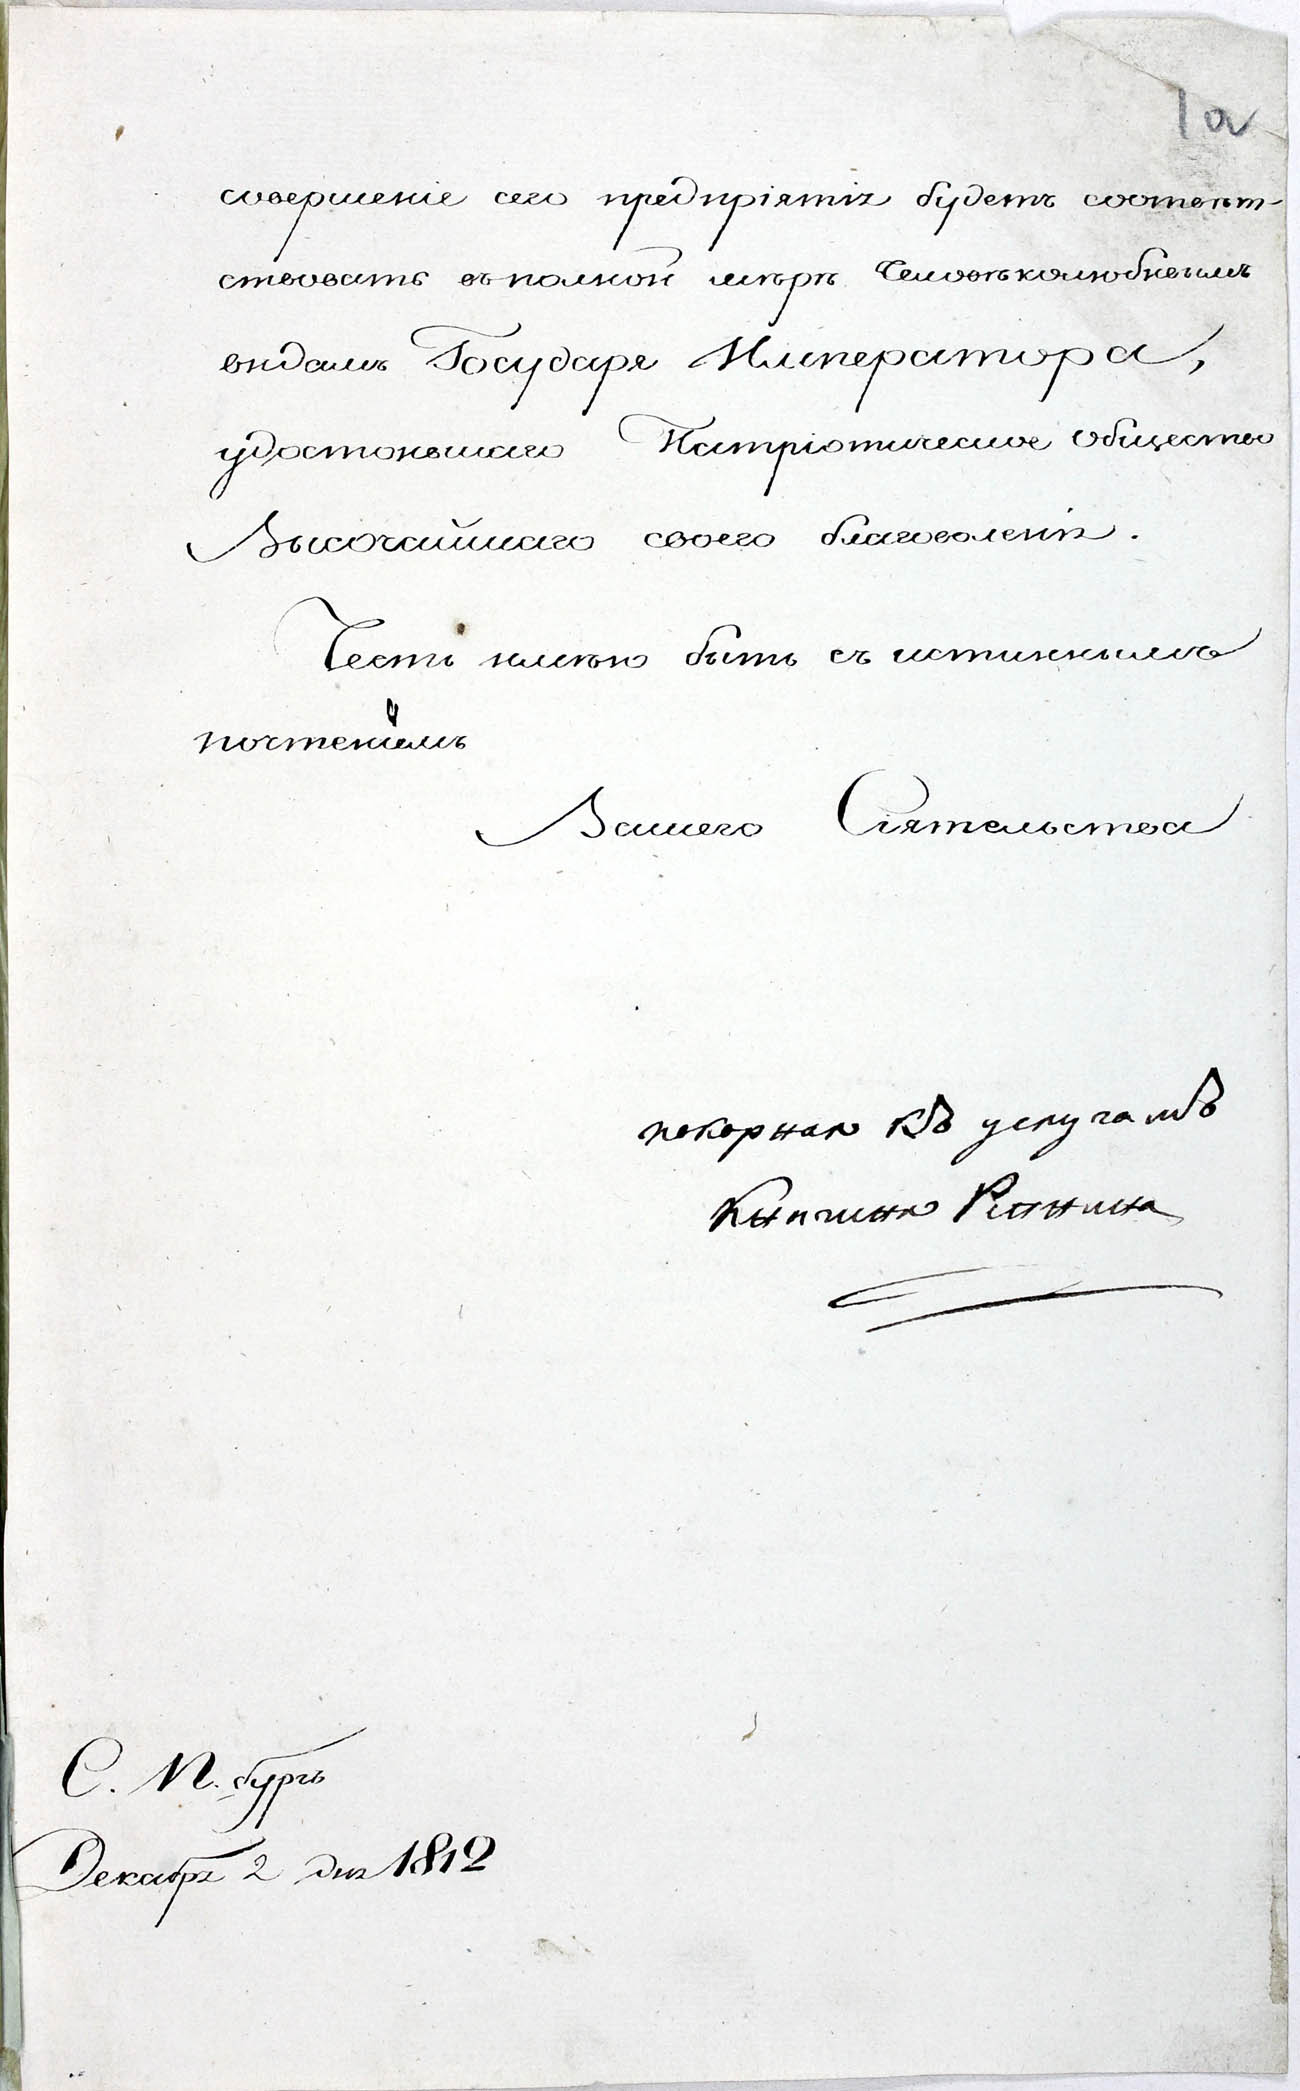 1а
совершеніе сего предпріятія будетъ соотвѣт-
ствовать въ полной мѣрѣ Человѣколюбивымъ
видамъ Государя Императора,
удостоившаго Патріотическое Общество
Высочайшаго своего благоволенія.
Честь имѣю быть съ истиннымъ
почтеніемъ
Вашего Сіятельства
покорная къ услугамъ
Княгиня
С. П. бургъ
Декабря 2 дня 1812